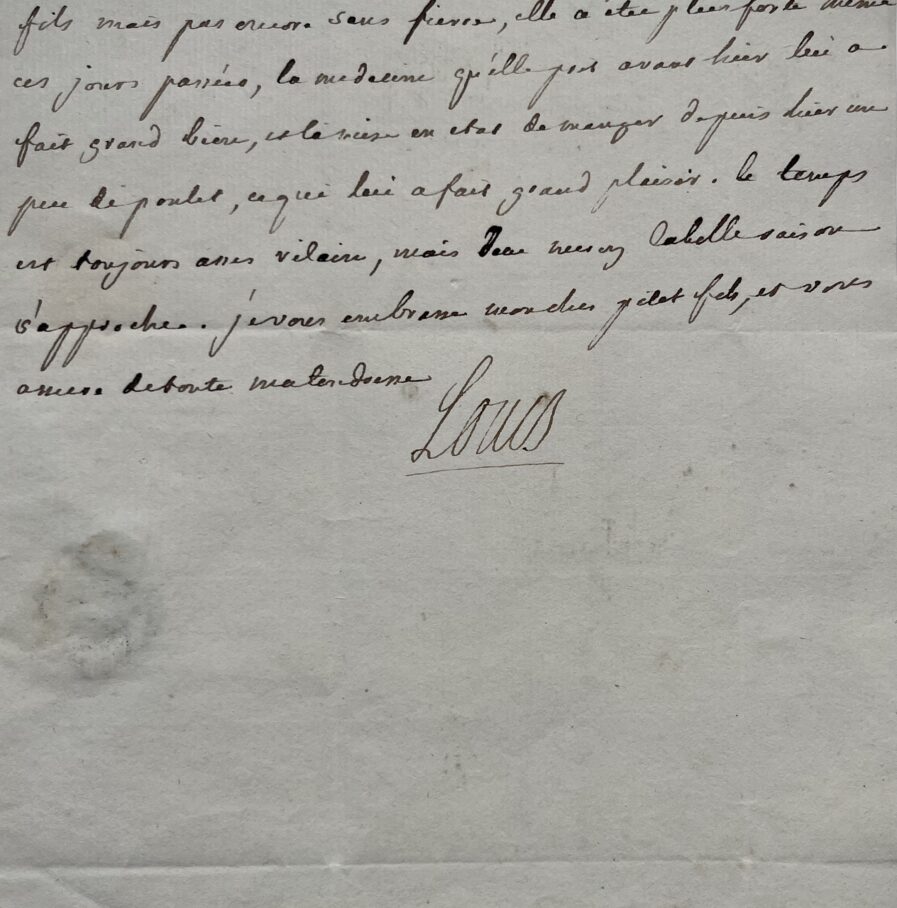 fils mais pas encore sans fievre, elle a étée plus forte même
ces jours passées, la medecine qu'elle prit avant hier lui a
fait grand bien, et la mise en etat de manger depuis hier un
peu de poulet, ce qui lui a fait grand plaisir. le temps
est toujours asses vilain, mais la belle saison
s'approche. je vous embrasse mon cher petit fils, et vous
assure de toute ma tendresse
Louis